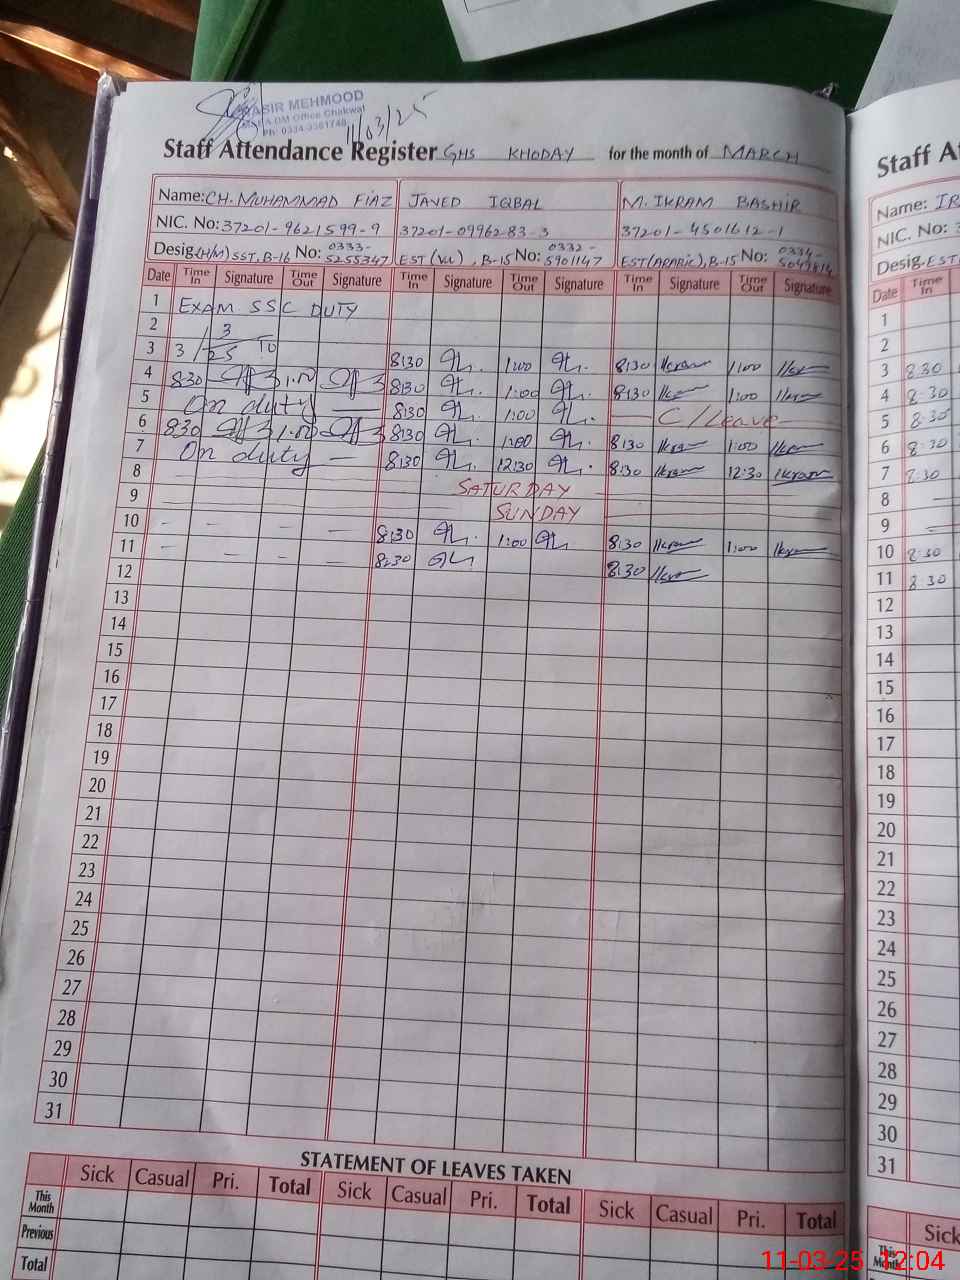 ASIR MEHMOOD
DM Office Chakwal
11/03/25
Staff Attendance Register GHS KHODAY for the month of MARCH
Name: CH. MUHAMMAD FIAZ JAVED IQBAL M. IKRAM BASHIR
NIC. No: 37201-9621599-9 37201-0996283-3 37201-4501612-1
Desig. (H/M) SST, B-16 No: 0333-5255347 EST (Voc), B-15 No: 0332-5901147 EST (ARABIC), B-15 No: 0334-
Date Time In Signature Time Out Signature Time In Signature Time Out Signature Time In Signature Time Out Signature
1 EXAM SSC DUTY
2
3 3/3/25 TO 8:30 1:00 8:30 Ikram 1:00 Ikram
4 830 1.00 8:30 1:00 8:30 1:00
5 On duty 8:30 1:00 C/Leave
6 830 1.00 8:30 1:00 8:30 Ikram 1:00
7 On duty 8:30 12:30 8:30 Ikram 12:30 Ikram
8 SATURDAY
9 SUNDAY
10 - - - - 8:30 1:00 8:30 Ikram 1:00 Ikram
11 - - - - 8:30 8:30 Ikram
12
13
14
15
16
17
18
19
20
21
22
23
24
25
26
27
28
29
30
31
STATEMENT OF LEAVES TAKEN
Sick Casual Pri. Total Sick Casual Pri. Total Sick Casual Pri. Total
This Month
Previous
Total
Staff A
Name: IR
NIC. No: 3
Desig. EST
Date Time In
1
2
3 8:30
4 8:30
5 8:30
6 8:30
7 8:30
8
9
10 8:30
11 8:30
12
13
14
15
16
17
18
19
20
21
22
23
24
25
26
27
28
29
30
31
Sick
This Month
11-03-25 12:04